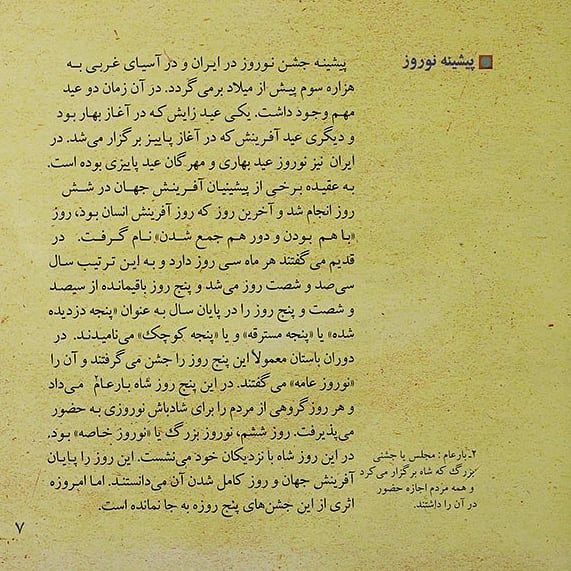 پیشینه نوروز
پیشینه جشن نوروز در ایران و در آسیای غربی به
هزاره سوم پیش از میلاد برمی‌گردد. در آن زمان دو عید
مهم وجود داشت. یکی عید زایش‌که در آغاز بهار بود
و دیگری عید آفرینش‌که در آغاز پاییز برگزار می‌شد. در
ایران نیز نوروز عید بهاری و مهرگان عید پاییزی بوده است.
به عقیده برخی از پیشینیان آفرینش جهان در شش
روز انجام شد و آخرین روز که روز آفرینش انسان بود، روز
«با هم بودن و دور هم جمع شدن» نام گرفت. در
قدیم می‌گفتند هر ماه سی روز دارد و به این ترتیب سال
سی‌صد و شصت روز می‌شد و پنج روز باقیمانده از سیصد
و شصت و پنج روز را در پایان سال به عنوان «پنجه دزدیده
شده» یا «پنجه مسترقه» و یا «پنجه کوچک» می‌نامیدند. در
دوران باستان معمولاً این پنج روز را جشن می‌گرفتند و آن را
«نوروز عامه» می‌گفتند. در این پنج روز شاه بارعام۲ می‌داد
و هر روز گروهی از مردم را برای شادباش نوروزی به حضور
می‌پذیرفت. روز ششم، نوروز بزرگ یا «نوروز خاصه» بود.
در این روز شاه با نزدیکان خود می‌نشست. این روز را پایان
آفرینش جهان و روز کامل شدن آن می‌دانستند. اما امروزه
اثری از این جشن‌های پنج روزه به جا نمانده است.
۲ـ بارعام : مجلس یا جشنی
بزرگ که شاه برگزار می‌کرد
و همه مردم اجازه حضور
در آن را داشتند.
۷